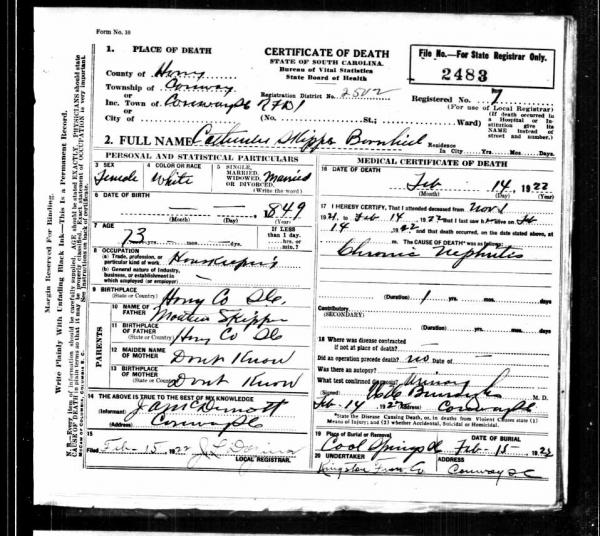 Form No. 10
1. PLACE OF DEATH
County of Horry
Township of Conway
or
Inc. Town of Conway SC RFD 1
or
City of
CERTIFICATE OF DEATH
STATE OF SOUTH CAROLINA
Bureau of Vital Statistics
State Board of Health
Registration District No. 2502
(No. St.; Ward)
File No.—For State Registrar Only.
2483
Registered No. 7
(For use of Local Registrar)
(If death occurred in a Hospital or Institution give its NAME instead of street and number.)
2. FULL NAME Catherine Skipper Barnhill
Residence
In City Yrs. Mos. Days.
PERSONAL AND STATISTICAL PARTICULARS
3 SEX
Female
4 COLOR OR RACE
White
5 SINGLE, MARRIED, WIDOWED, OR DIVORCED.
(Write the word)
Married
6 DATE OF BIRTH
— — 1849
(Month) (Day) (Year)
7 AGE
73 yrs. — mos. — ds.
If LESS than 1 day. hrs. or min.?
8 OCCUPATION
(a) Trade, profession, or particular kind of work. Housekeeper's
(b) General nature of Industry, business, or establishment in which employed (or employer) —
9 BIRTHPLACE
(State or Country) Horry Co SC.
PARENTS
10 NAME OF FATHER Skipper
11 BIRTHPLACE OF FATHER
(State or Country) Horry Co SC
12 MAIDEN NAME OF MOTHER Dont Know
13 BIRTHPLACE OF MOTHER
(State or Country) Dont Know
14 THE ABOVE IS TRUE TO THE BEST OF MY KNOWLEDGE
(Informant) McDermott
(Address) Conway SC
15
Filed Feb 15 1922
LOCAL REGISTRAR.
MEDICAL CERTIFICATE OF DEATH
16 DATE OF DEATH
Feb 14, 1922
(Month) (Day) (Year)
17 I HEREBY CERTIFY, That I attended deceased from Nov 1
1921, to Feb 14 1922 that I last saw h alive on Feb
14 1922 and that death occurred, on the date stated above, at
m. The CAUSE OF DEATH* was as follows:
Chronic Nephritis
(Duration) 1 yrs. mos. days
Contributory
(SECONDARY)
(Duration) yrs. mos. days
18 Where was disease contracted
if not at place of death? —
Did an operation precede death? no Date of —
Was there an autopsy?
What test confirmed diagnosis? Urinary
(Signed) M. D.
Feb. 14 1922 (Address) Conway SC
*State the Disease Causing Death, or, in deaths from Violent Causes state (1) Means of Injury; and (2) whether Accidental, Suicidal or Homicidal.
19 Place of Burial or Removal
Cool Springs SC
DATE OF BURIAL
Feb 15 1922
20 UNDERTAKER
Kingston Furn Co
ADDRESS
Conway SC
Margin Reserved For Binding.
Write Plainly With Unfading Black Ink—This is a Permanent Record.
N. B.—Every item of information should be carefully supplied. AGE should be stated EXACTLY. PHYSICIANS should state CAUSE OF DEATH in plain terms so that it may be properly classified. Exact statement of OCCUPATION is very important. See instructions on back of certificate.